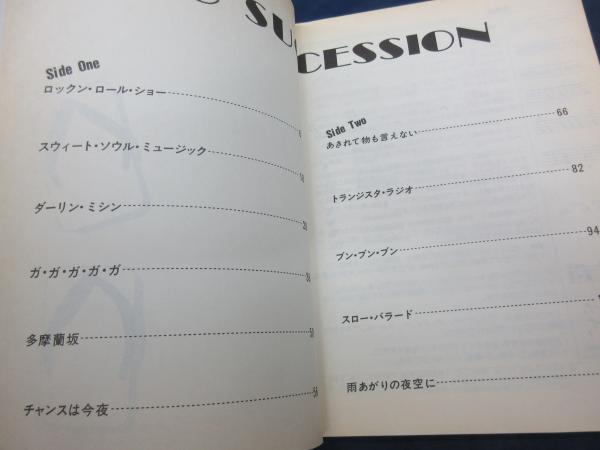 SUCCESSION
Side One
ロックン・ロール・ショー
スウィート・ソウル・ミュージック
ダーリン・ミシン
ガ・ガ・ガ・ガ・ガ
多摩蘭坂
チャンスは今夜
Side Two
あきれて物も言えない 66
トランジスタ・ラジオ 82
ブン・ブン・ブン 94
スロー・バラード
雨あがりの夜空に